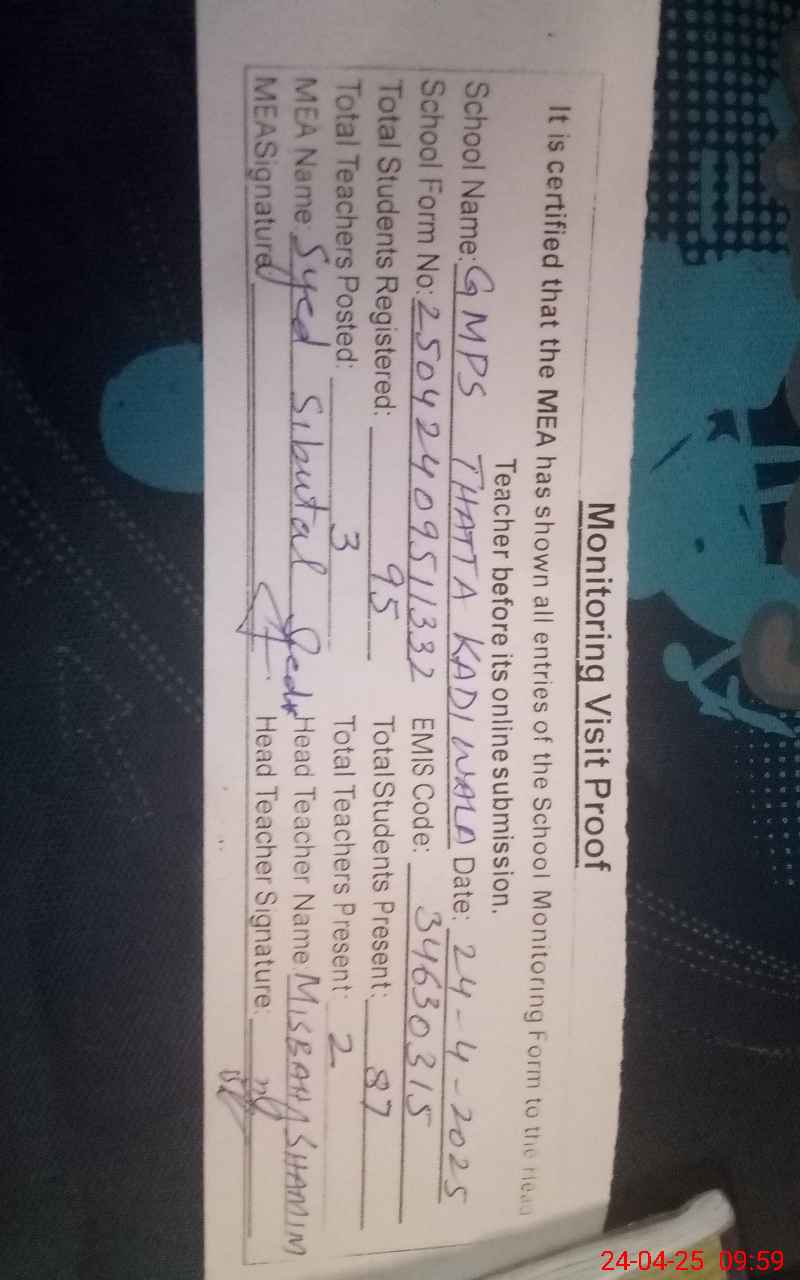 Monitoring Visit Proof
It is certified that the MEA has shown all entries of the School Monitoring Form to the Head
Teacher before its online submission.
School Name: GMPS THATTA KADI WALA Date: 24-4-2025
School Form No: 25042409511332 EMIS Code: 34630315
Total Students Registered: 95 Total Students Present: 87
Total Teachers Posted: 3 Total Teachers Present: 2
MEA Name: Syed Sibutal Head Teacher Name: MISBAH SHAMIM
MEASignature Head Teacher Signature:
24-04-25 09:59